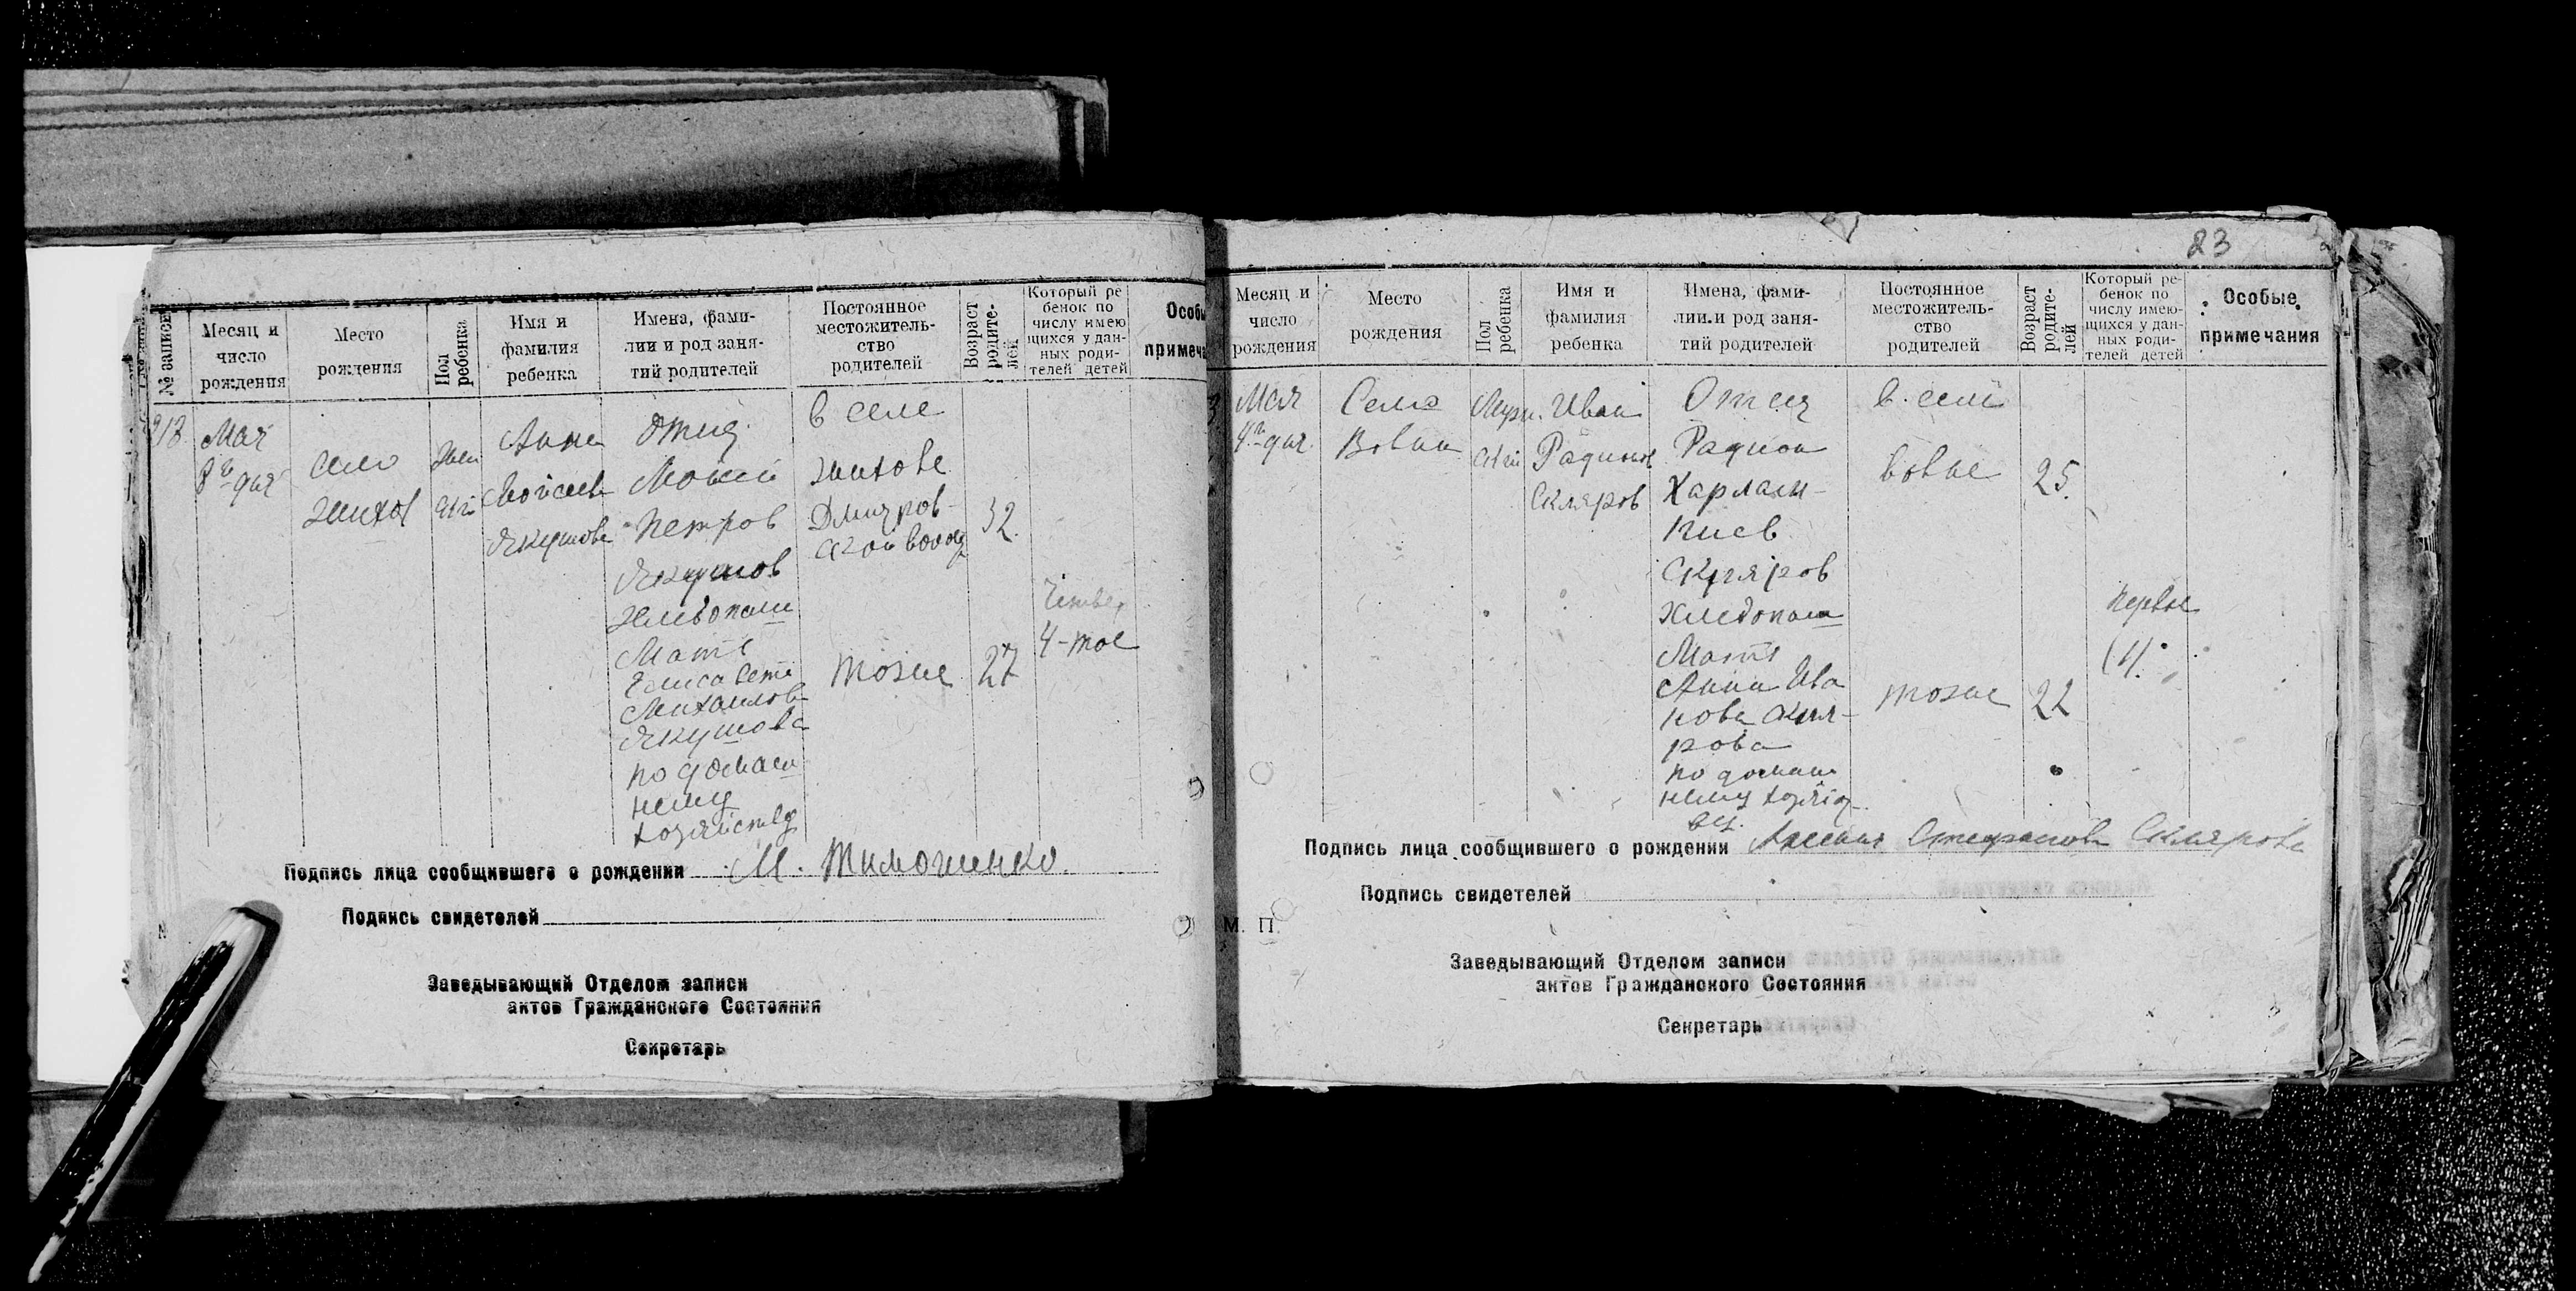 № записи
Месяц и
число
рождения
Место
рождения
Пол
ребенка
Имя и
фамилия
ребенка
Имена, фами-
лии и род заня-
тий родителей
Постоянное
местожитель-
ство
родителей
Возраст
родите-
лей
Который ре
бенок по
числу имею
щихся у дан-
ных роди-
телей детей
Особы
примеча
Мая
8го дня
Село
Жихов
Жен
ский
Анна
Моисеева
Якушова
Отец
Моисей
Петров
Якушов
Хлебопаш
Мать
Елисавета
Михайлова
Якушова
по домаш
нему
хозяйству
в селе
Жихове
тоже
32
27
4-тое
Подпись лица сообщившего о рождении М. Тимошенко.
Подпись свидетелей
Заведывающий Отделом записи
актов Гражданского Состояния
Секретарь
23
Месяц и
число
рождения
Место
рождения
Пол
ребенка
Имя и
фамилия
ребенка
Имена, фами-
лии и род заня-
тий родителей
Постоянное
местожитель-
ство
родителей
Возраст
родите-
лей
Который ре-
бенок по
числу имею-
щихся у дан-
ных роди-
телей детей
Особые
примечания
Мая
4го дня
Село
Вовна
Муж.
ский
Иван
Радионов
Скляров
Отец
Радион
Харлам-
пиев
Скляров
Хлебопаш
Мать
Анна Ива
нова Скля-
рова
по домаш
нему хозяйст-
ву.
в селе
Вовне
тоже
25.
22
первое
(1).
Подпись лица сообщившего о рождении Стефанова Склярова
Подпись свидетелей
М. П.
Заведывающий Отделом записи
актов Гражданского Состояния
Секретарь